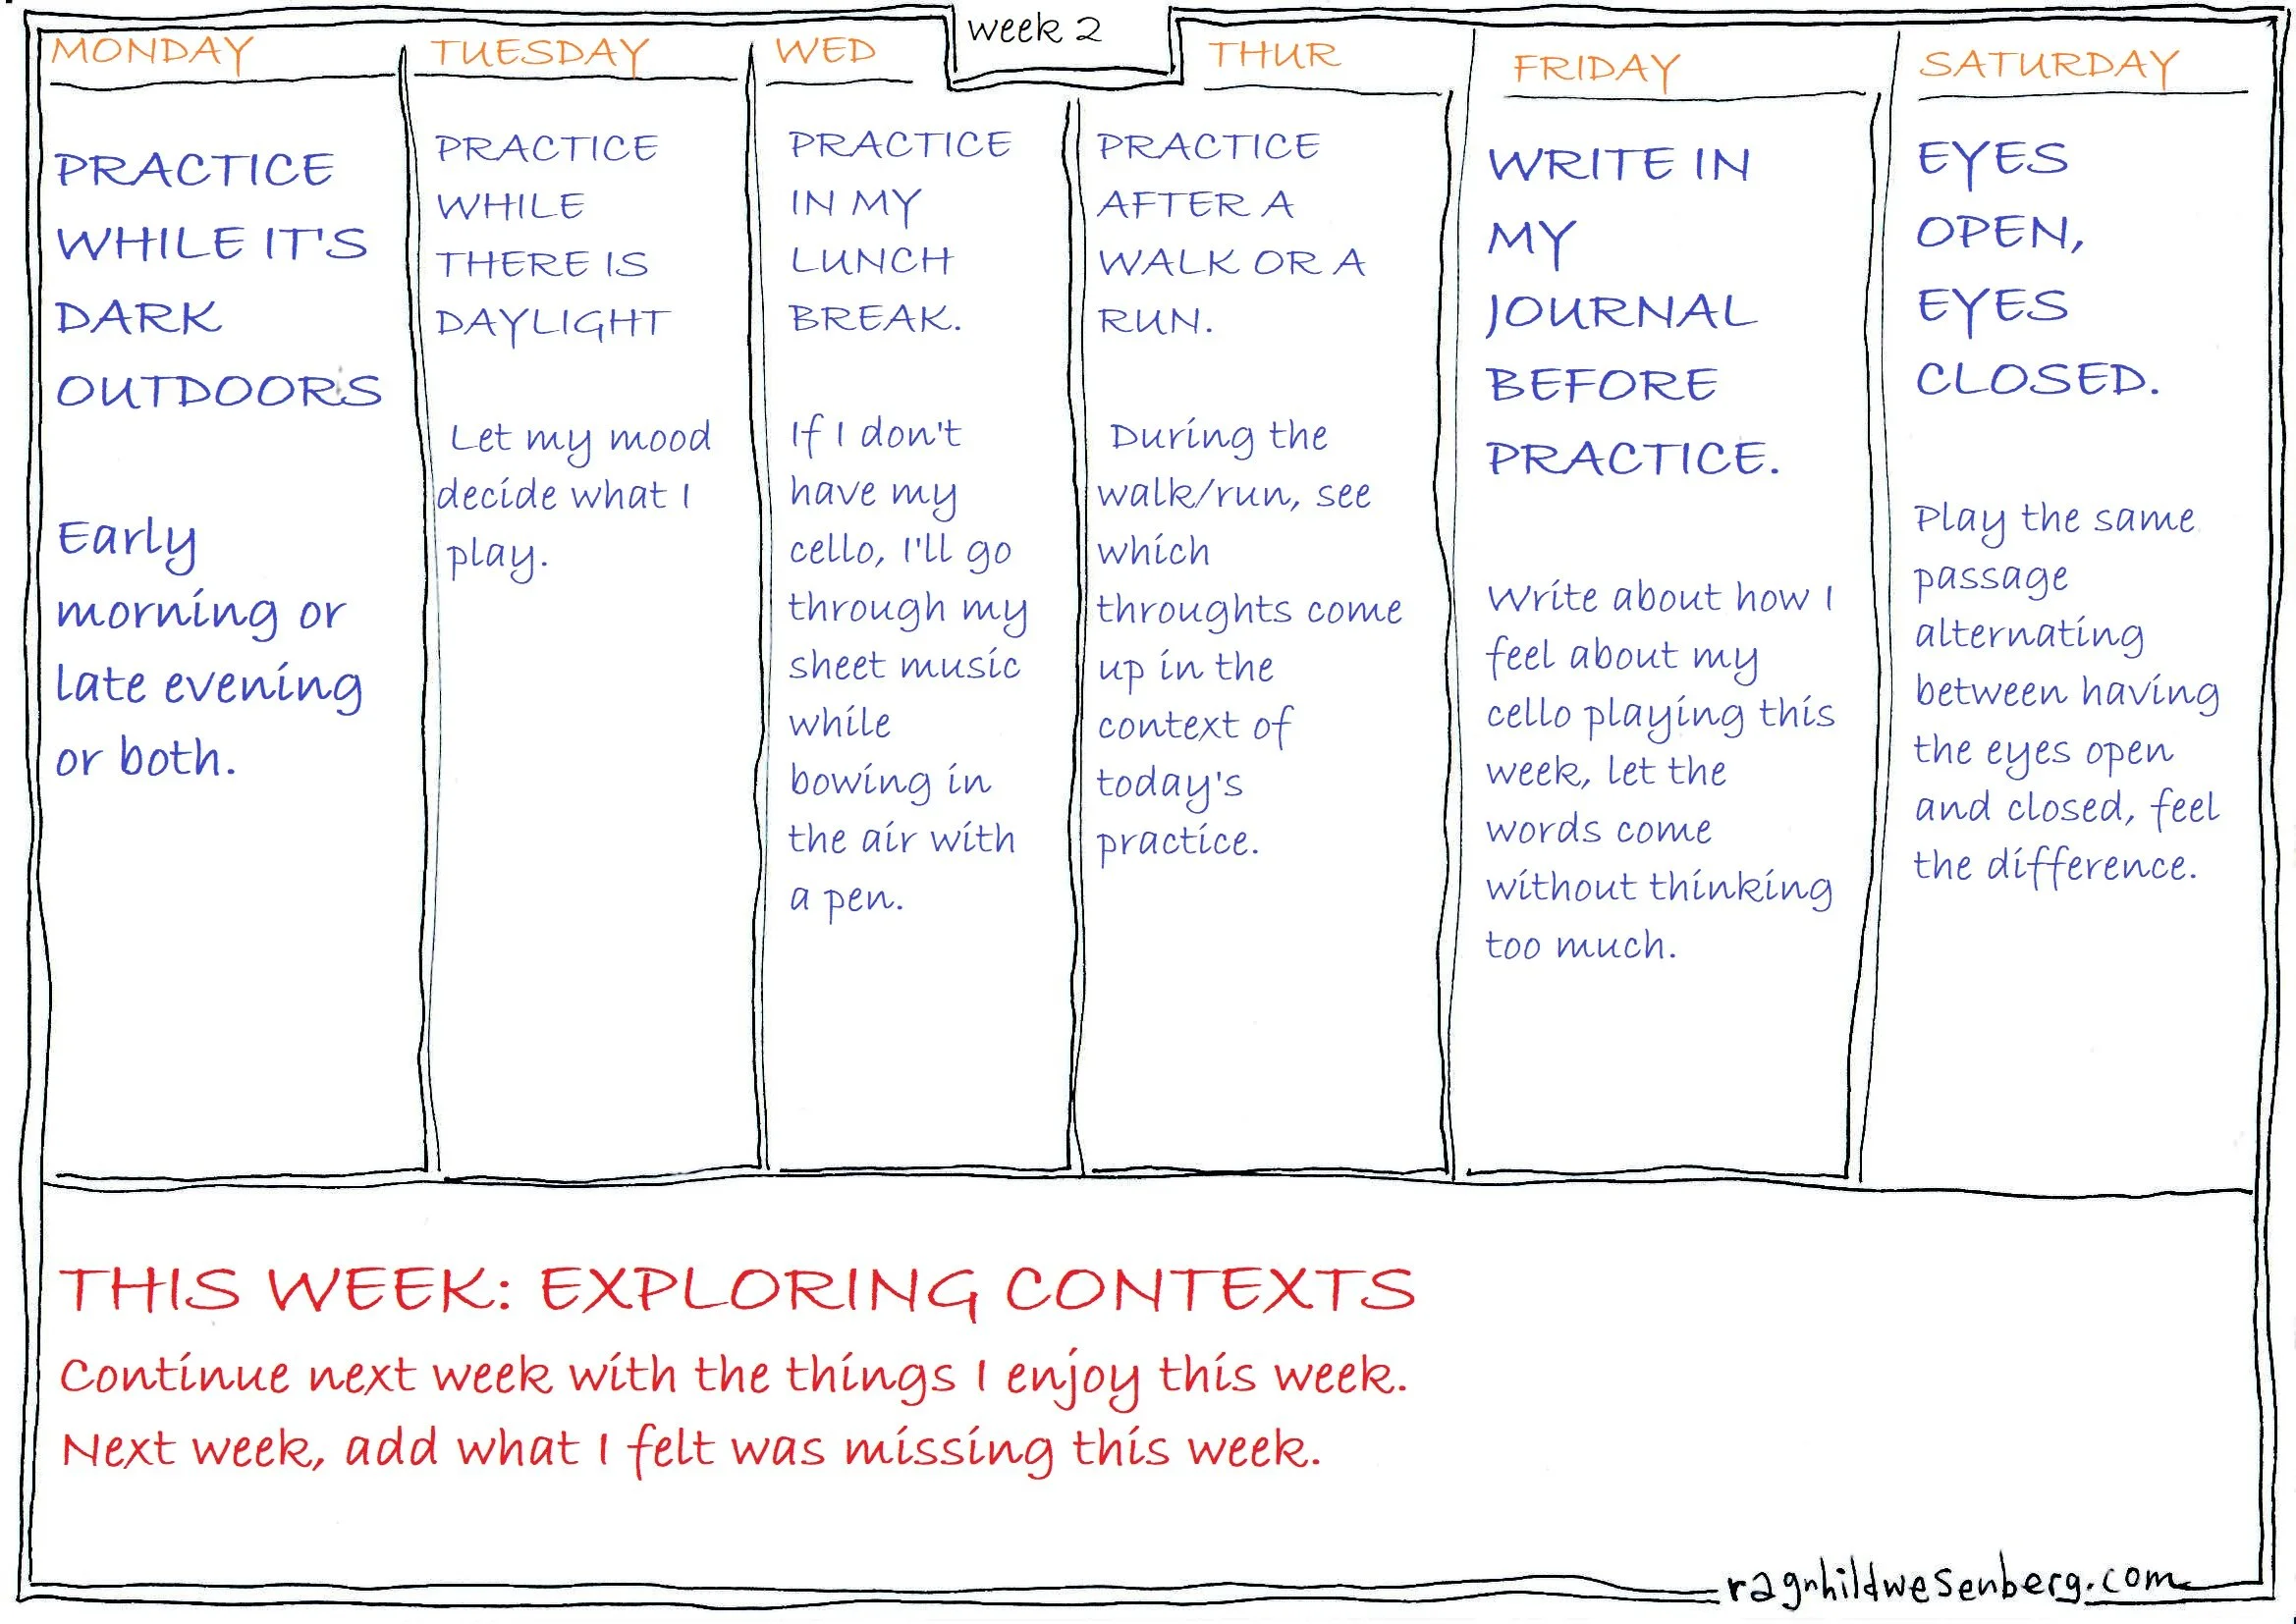 week 2
MONDAY
PRACTICE
WHILE IT'S
DARK
OUTDOORS
Early
morning or
late evening
or both.
TUESDAY
PRACTICE
WHILE
THERE IS
DAYLIGHT
Let my mood
decide what I
play.
WED
PRACTICE
IN MY
LUNCH
BREAK.
If I don't
have my
cello, I'll go
through my
sheet music
while
bowing in
the air with
a pen.
THUR
PRACTICE
AFTER A
WALK OR A
RUN.
During the
walk/run, see
which
throughts come
up in the
context of
today's
practice.
FRIDAY
WRITE IN
MY
JOURNAL
BEFORE
PRACTICE.
Write about how I
feel about my
cello playing this
week, let the
words come
without thinking
too much.
SATURDAY
EYES
OPEN,
EYES
CLOSED.
Play the same
passage
alternating
between having
the eyes open
and closed, feel
the difference.
THIS WEEK: EXPLORING CONTEXTS
Continue next week with the things I enjoy this week.
Next week, add what I felt was missing this week.
ragnhildwesenberg.com